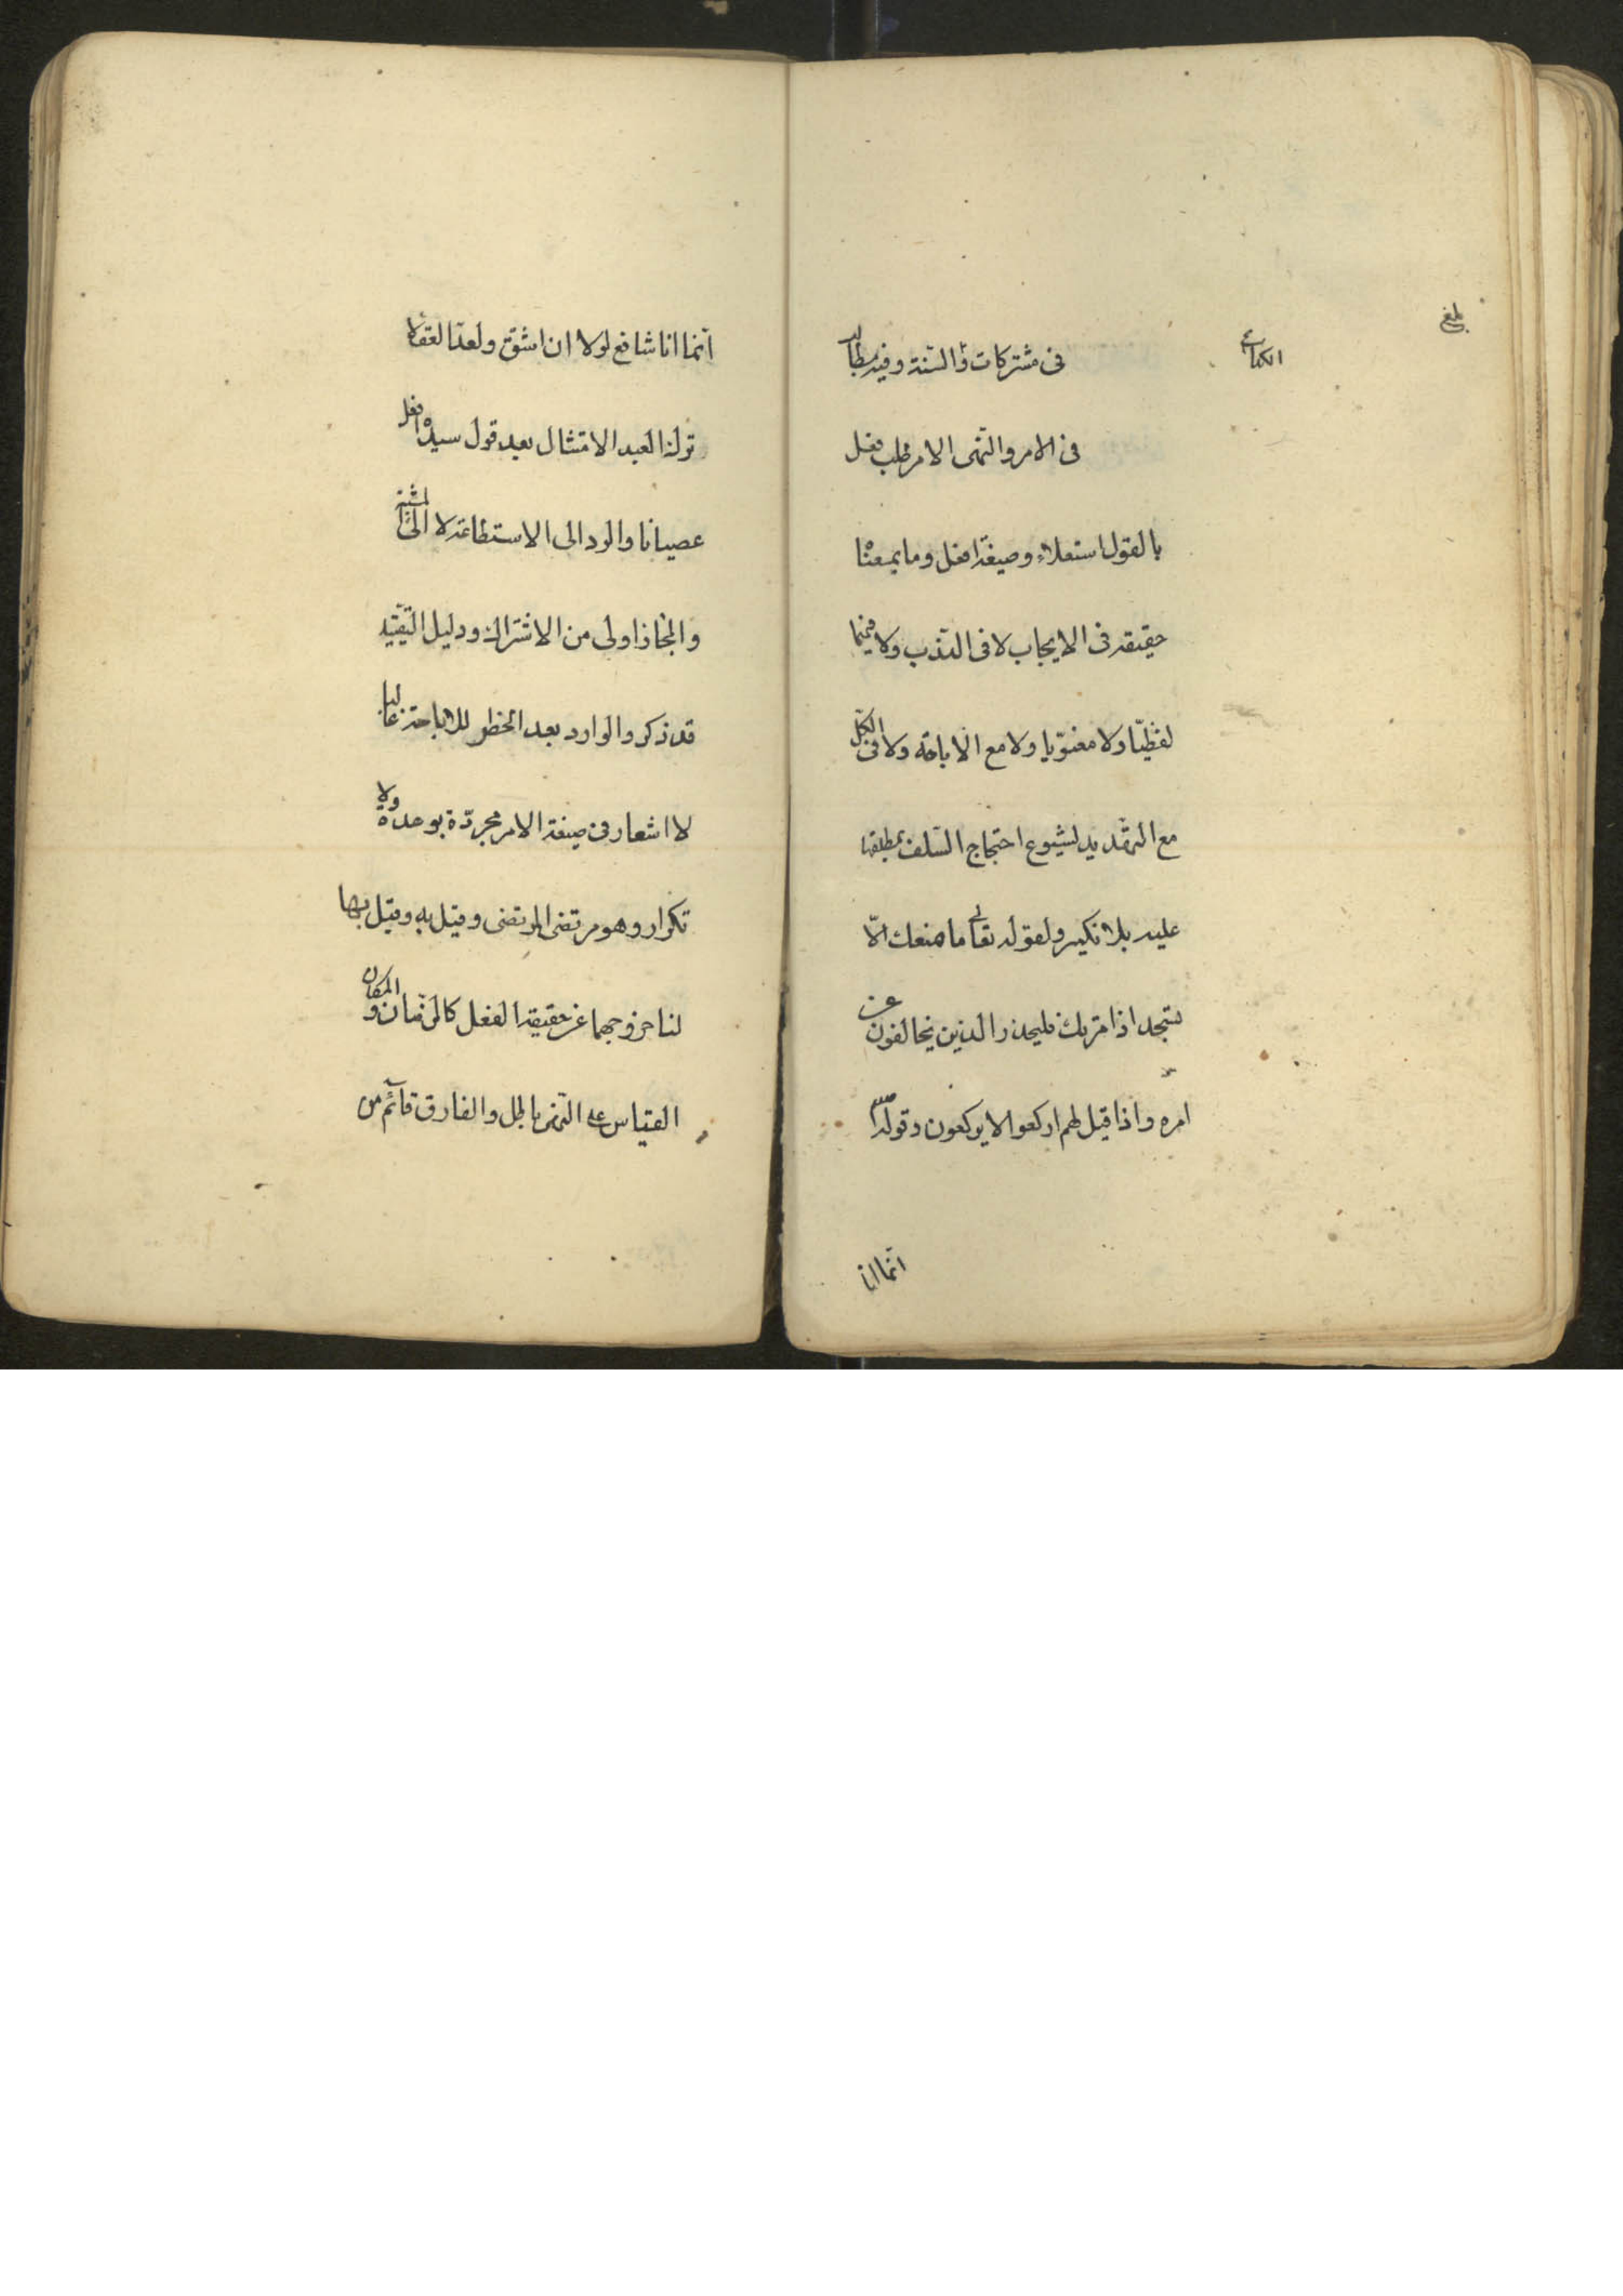 بلغ
الكتاب
فى مشتركات و السنة وفيه مطالب
فى الامر والنهى الامر طلب فعل
بالقول استعلاء وصيغة افعل وما بمعناه
حقيقة فى الايجاب لا فى الندب ولا فيهما
لفظيّا ولا معنويّا ولا مع الاباحة ولا فى الكلّ
مع التهديد لشيوع احتجاج السّلف بمطلقها
عليه بلا نكير ولقوله تعالى ما منعك الّا
تسجد اذ امرتك فليحذر الذين يخالفون عن
امره واذا قيل لهم اركعوا لا يركعون وقوله ص
انما انا
انّما انا شافع لولا ان اشقّ ولعدّ العقلا
ترك العبد الامتثال بعد قول سيده افعل
عصيانا والرد الى الاستطاعة لا الى المشية
والمجاز اولى من الاشتراك ودليل التقييد
قد ذكر والوارد بعد الحظر للاباحة غالبا
لا اشعار فى صيغة الامر مجرّدة بوحدة ولا
تكرار وهو مرتضى المرتضى وقيل به وقيل بها
لنا خروجهما عن حقيقة الفعل كالزمان و المكان
القياس على النهى باطل والفارق قائم من